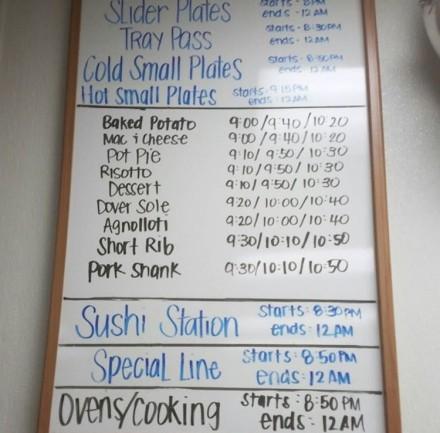 Slider Plates starts - 8PM
ends - 12AM
Tray Pass starts - 8:30PM
ends - 12AM
Cold Small Plates starts - 8:50PM
ends - 12AM
Hot Small Plates starts - 9:15PM
ends - 12AM
Baked Potato 9:00/9:40/10:20
Mac & Cheese 9:00/9:40/10:20
Pot Pie 9:10/9:50/10:30
Risotto 9:10/9:50/10:30
Dessert 9:10/9:50/10:30
Dover Sole 9:20/10:00/10:40
Agnolloti 9:20/10:00/10:40
Short Rib 9:30/10:10/10:50
Pork Shank 9:30/10:10/10:50
Sushi Station starts: 8:30PM
ends: 12AM
Special Line starts: 8:50PM
ends: 12AM
Ovens/Cooking starts: 8:50PM
ends: 12AM